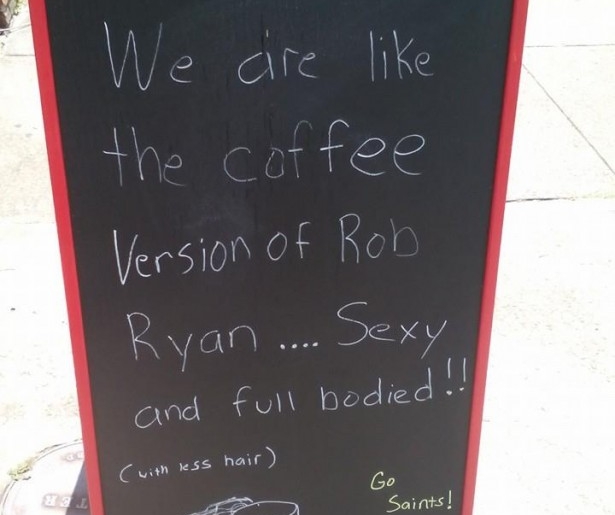 We are like
the coffee
Version of Rob
Ryan .... Sexy
and full bodied!!
(with less hair)
Go
Saints!